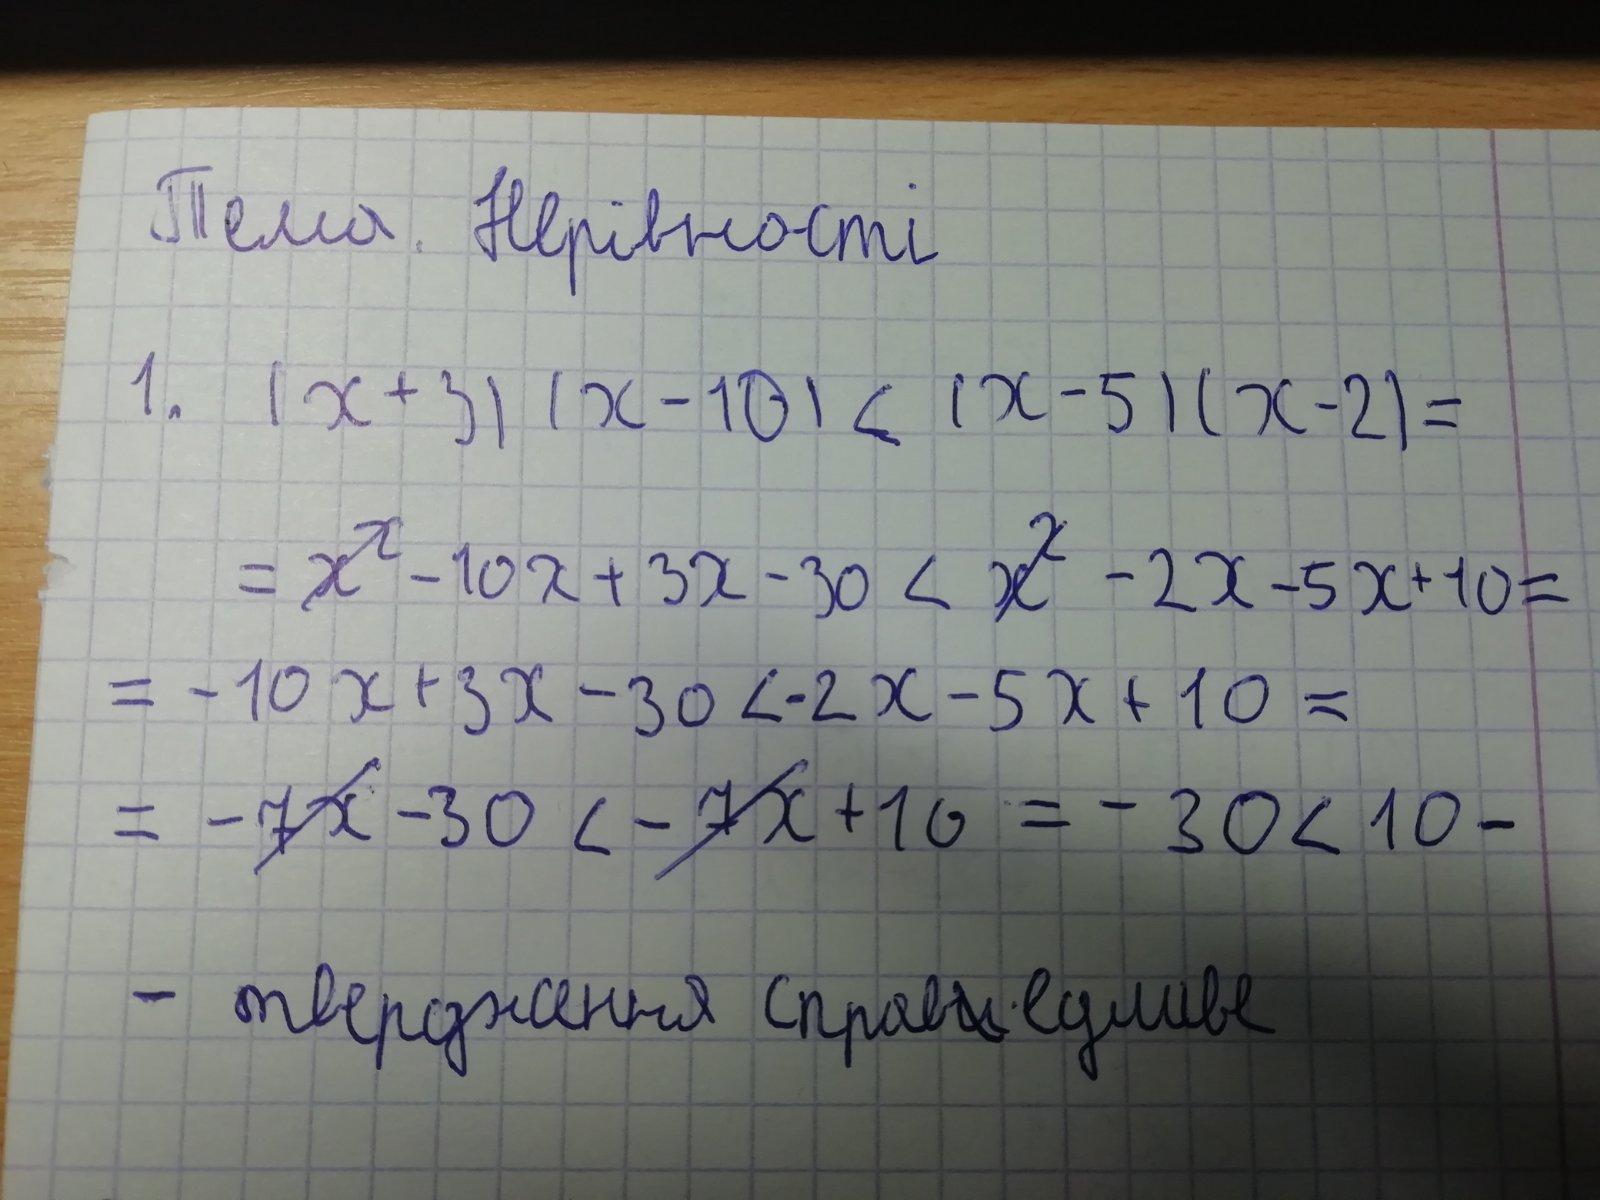 Тема. Нерівності
1. (x+3)(x-10)<(x-5)(x-2)=
=x²-10x+3x-30<x²-2x-5x+10=
=-10x+3x-30<-2x-5x+10=
=-7x-30<-7x+10=-30<10-
- твердження справедливе